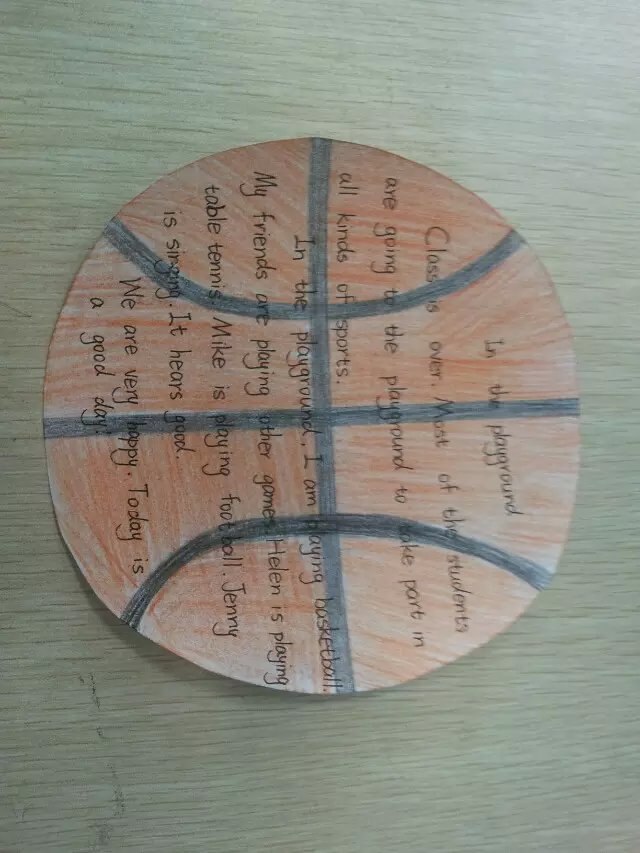 In the playground
Class is over. Most of the students
are going to the playground to take part in
all kinds of sports.
In the playground, I am playing basketball.
My friends are playing other games. Helen is playing
table tennis. Mike is playing football. Jenny
is singing. It hears good.
We are very happy. Today is
a good day.